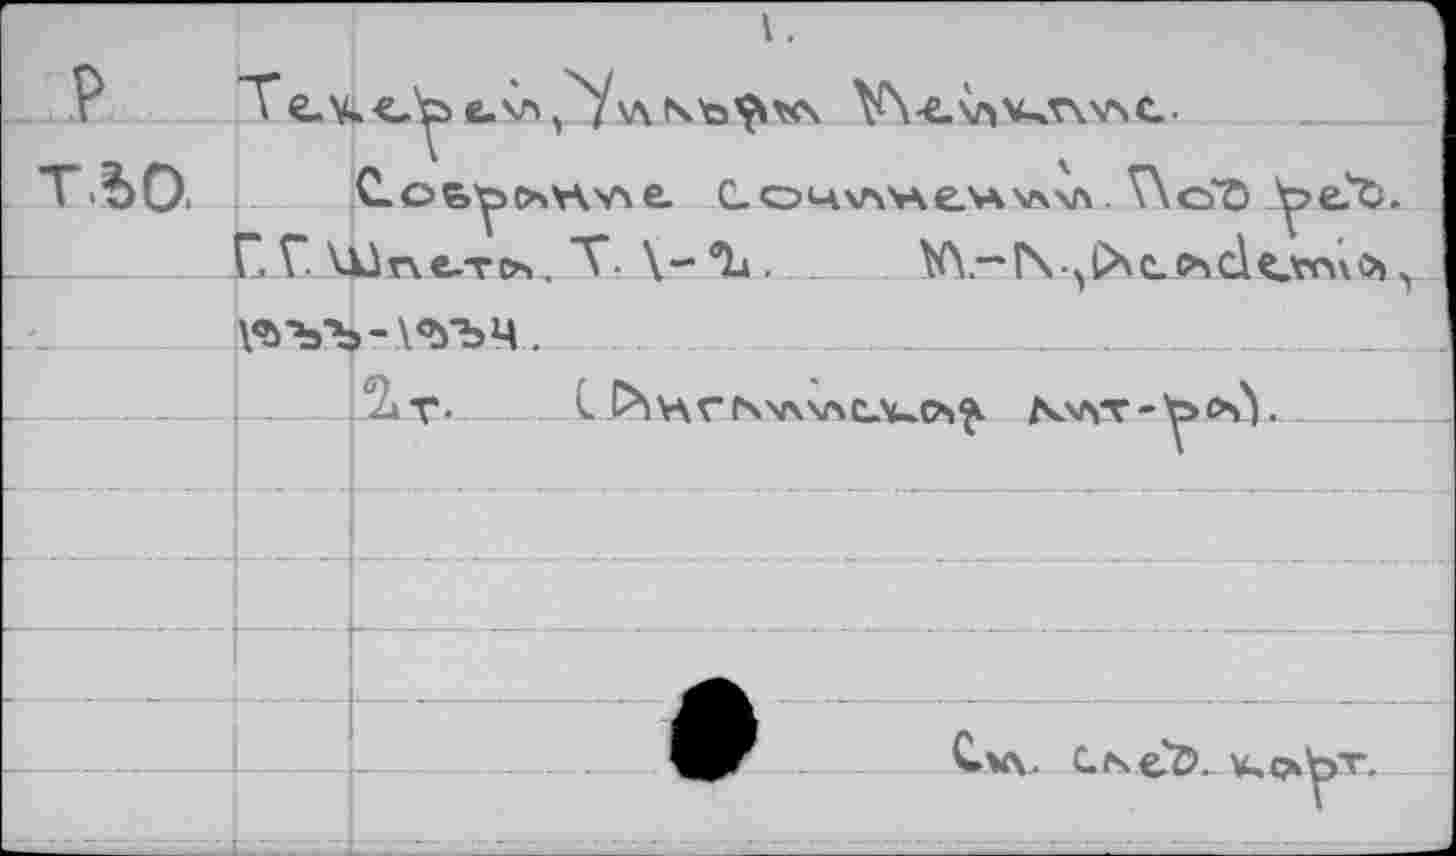 1.
Р Теккерей, Уильям Мейкпис.
Т.30. Собрание сочинений. Под ред.
Г.Г. Шпета. Т. 1-2. М.-Л., Academia,
1933-1934.
2 т. (Английская лит-ра).
См. след. карт.